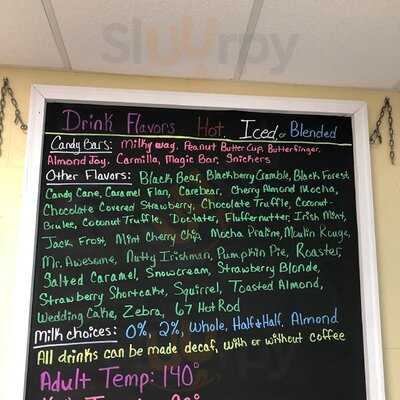 Slurrpy
Drink Flavors Hot, Iced or Blended
Candy Bars: Milky way, Peanut Butter Cup, Butterfinger,
Almond Joy, Carmilla, Magic Bar, Snickers
Other Flavors: Black Bear, Blackberry Crumble, Black Forest
Candy Cane, Caramel Flan, Carebear, Cherry Almond Mocha,
Chocolate Covered Strawberry, Chocolate Truffle, Coconut-
Brulee, Coconut Truffle, Doctates, Fluffernutter, Irish Mint,
Jack Frost, Mint Cherry Chip Mocha Praline, Moulin Rouge,
Mr. Awesome, Nutty Irishman, Pumpkin Pie, Roaster,
Salted Caramel, Snowcream, Strawberry Blonde,
Strawberry Shortcake, Squirrel, Toasted Almond,
Wedding Cake, Zebra, 67 Hot Rod
Milk choices: 0%, 2%, Whole, Half & Half, Almond
All drinks can be made decaf, with or without coffee
Adult Temp: 140°